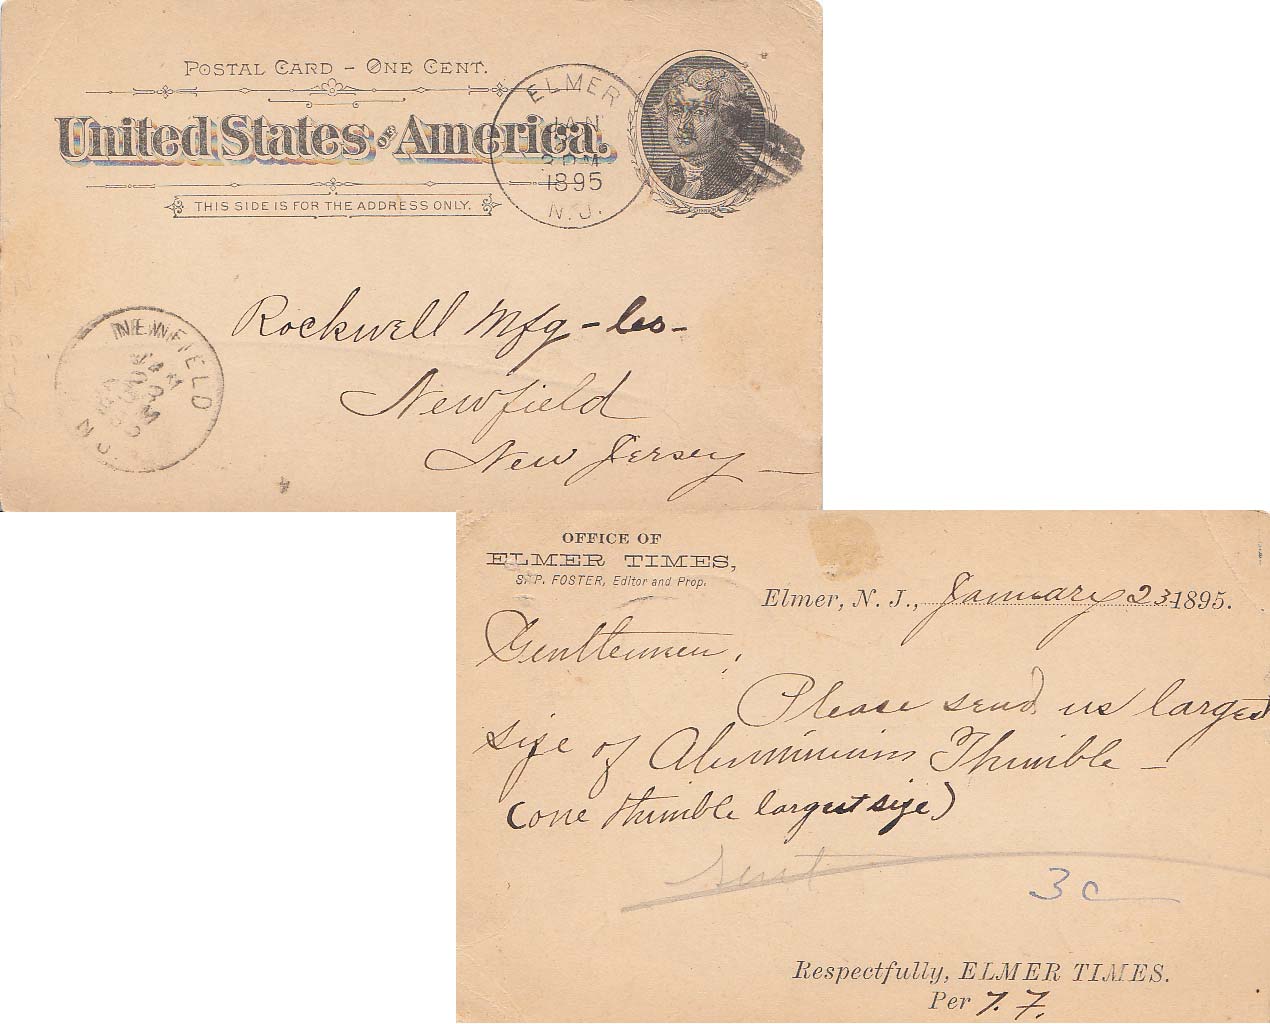 POSTAL CARD – ONE CENT.
United States of America.
THIS SIDE IS FOR THE ADDRESS ONLY.
ELMER
JAN
1895
N.J.
Rockwell Mfg - Co -
Newfield
New Jersey
NEWFIELD
N.J.
4
OFFICE OF
ELMER TIMES,
S. P. FOSTER, Editor and Prop.
Elmer, N. J., January 23 1895.
Gentlemen,
Please send us largest
size of Aluminium Thimble –
(one thimble largest size)
sent
3c
Respectfully, ELMER TIMES.
Per T. F.